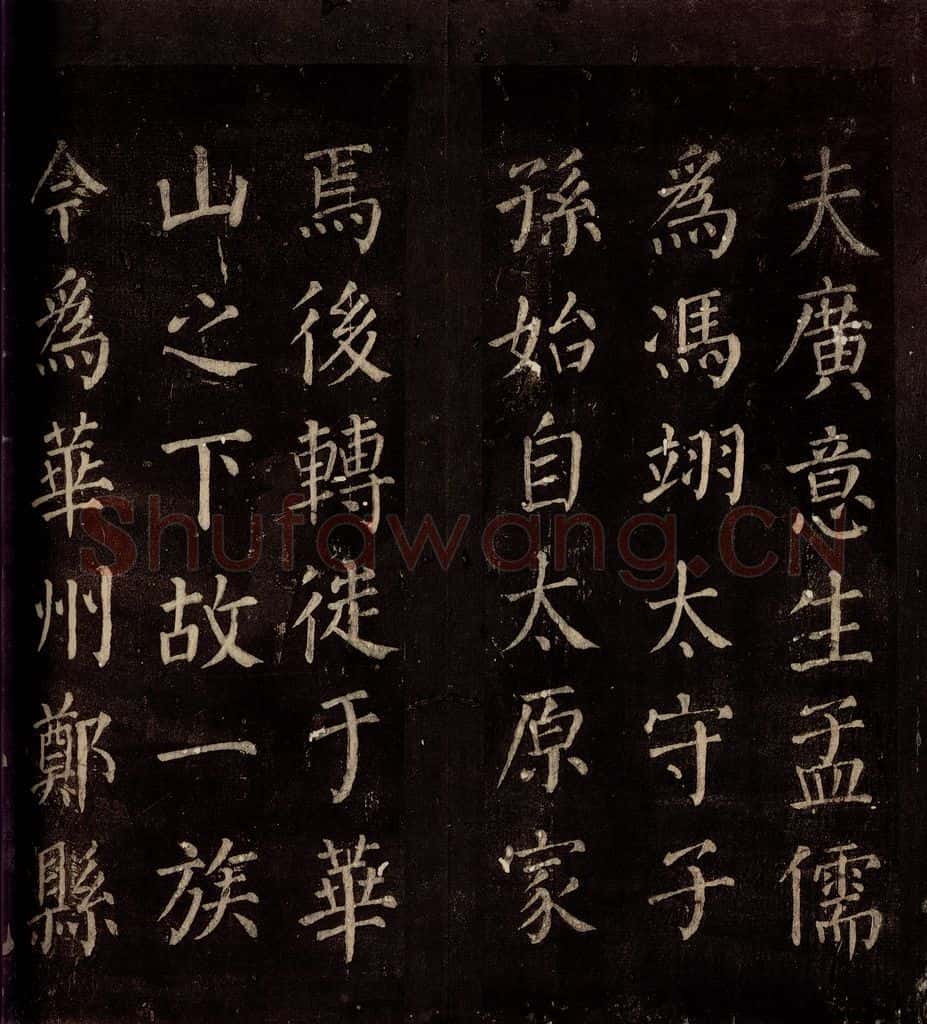 夫廣意生孟儒
為馮翊太守子
孫始自太原家
焉後轉徙于華
山之下故一族
今為華州鄭縣
Shufawang.CN